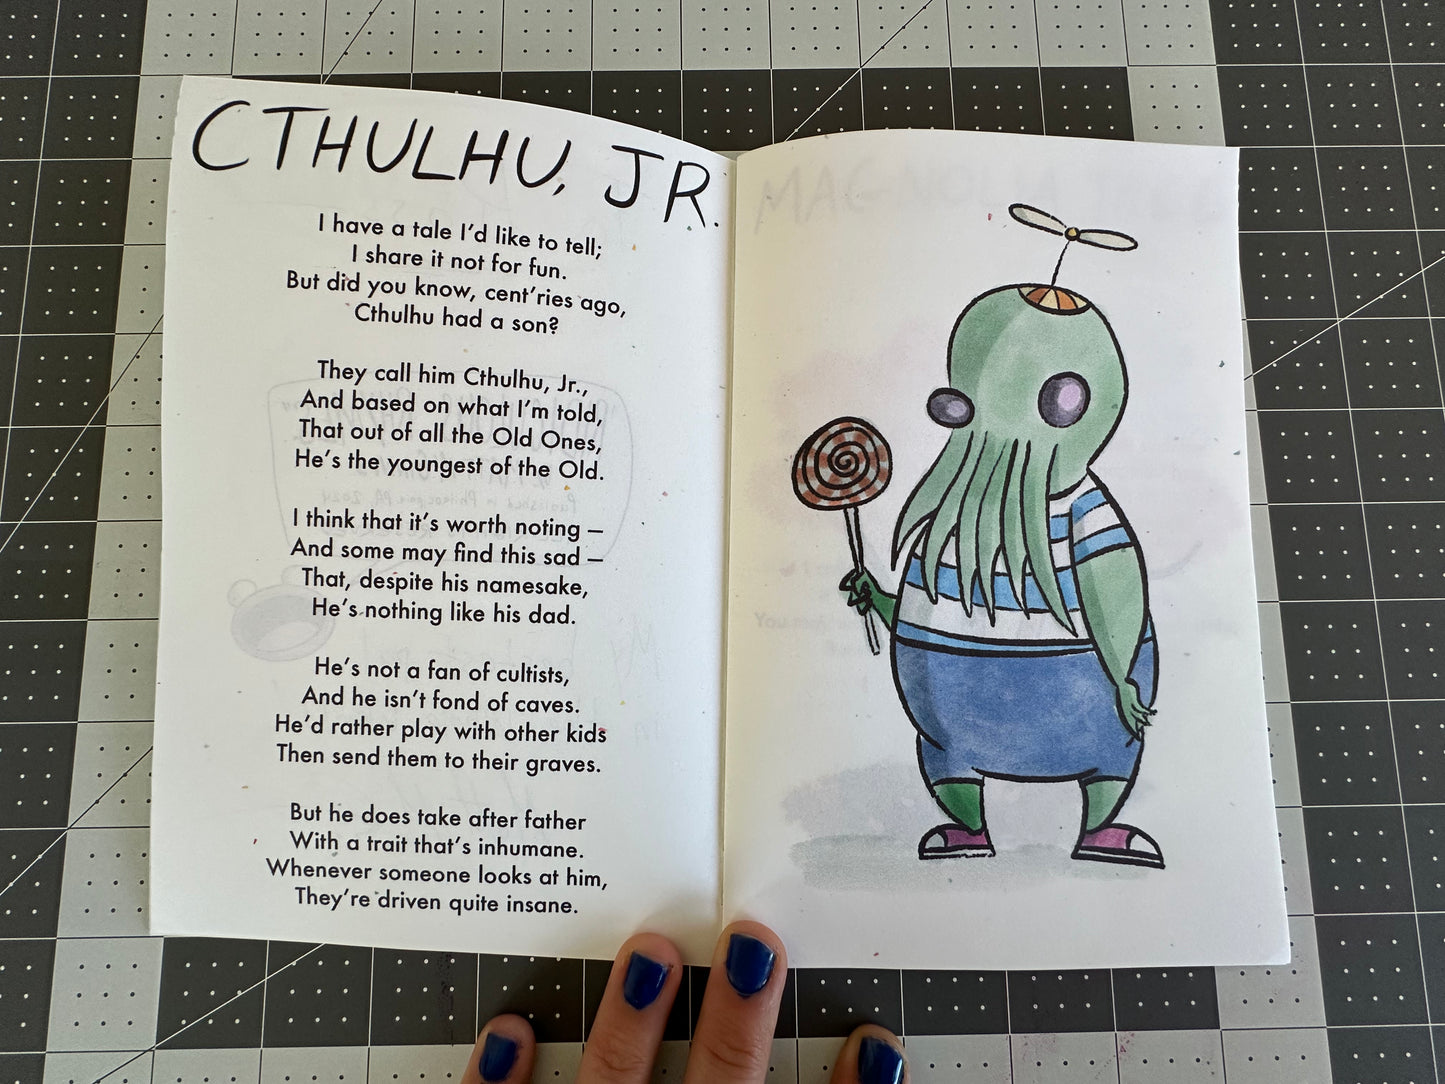 CTHULHU, JR.
I have a tale I'd like to tell;
I share it not for fun.
But did you know, cent'ries ago,
Cthulhu had a son?
They call him Cthulhu, Jr.,
And based on what I'm told,
That out of all the Old Ones,
He's the youngest of the Old.
I think that it's worth noting –
And some may find this sad –
That, despite his namesake,
He's nothing like his dad.
He's not a fan of cultists,
And he isn't fond of caves.
He'd rather play with other kids
Then send them to their graves.
But he does take after father
With a trait that's inhumane.
Whenever someone looks at him,
They're driven quite insane.
MAGNOLIA